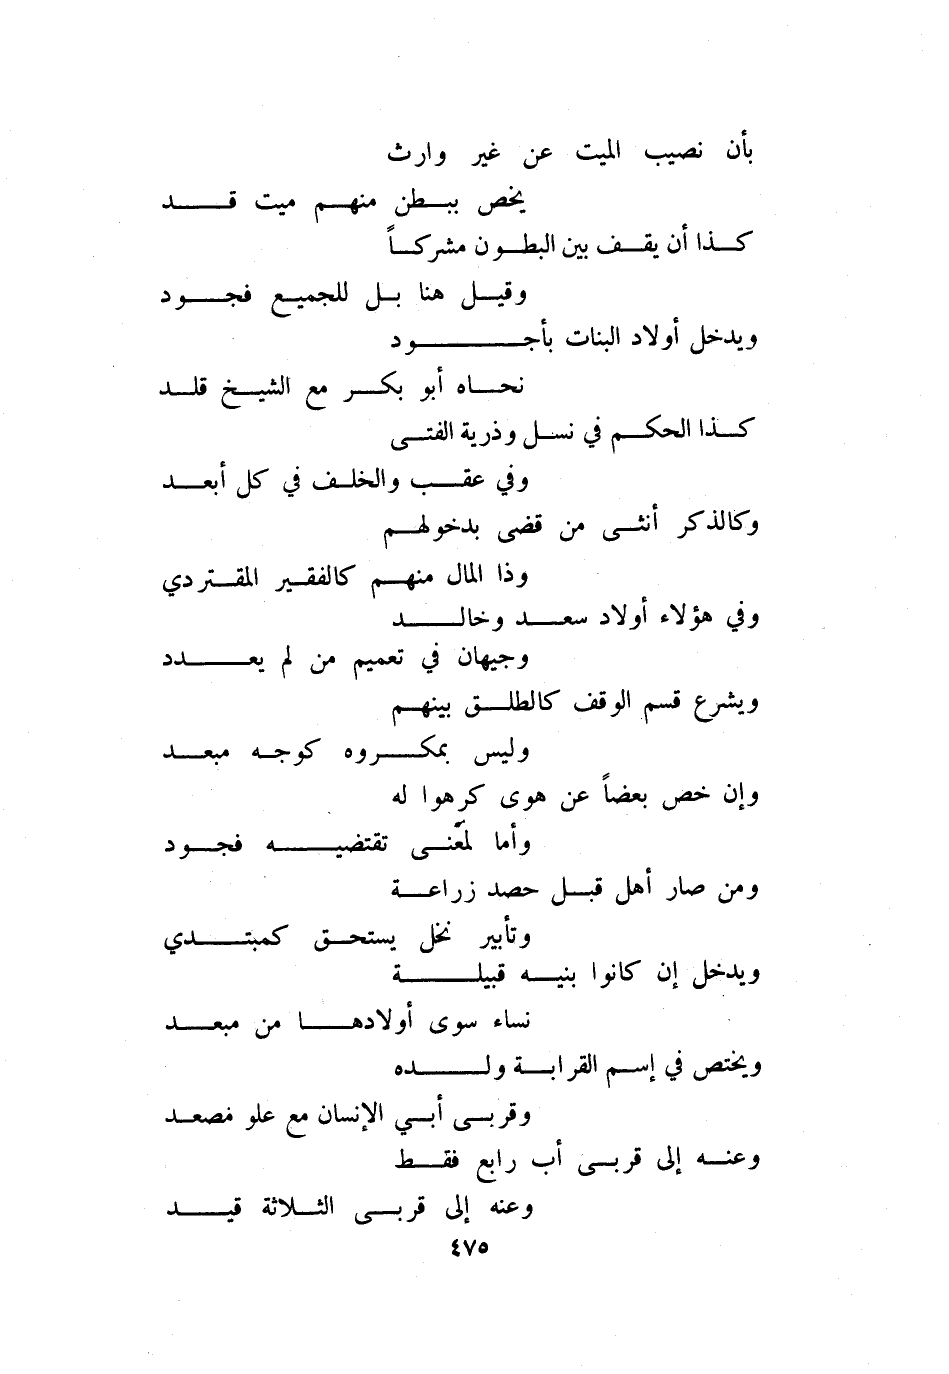 بأن نصيب الميت عن غير وارث
يخص ببطن منهم ميت قد
كذا أن يقف بين البطون مشركاً
وقيل هنا بل للجميع فجود
ويدخل أولاد البنات بأجود
نحاه أبو بكر مع الشيخ قلد
كذا الحكم في نسل وذرية الفتى
وفي عقب والخلف في كل أبعد
وكالذكر أنثى من قضى بدخولهم
وذا المال منهم كالفقير المقتردي
وفي هؤلاء أولاد سعد وخالد
وجيهان في تعميم من لم يعدد
ويشرع قسم الوقف كالطلق بينهم
وليس بمكروه كوجه مبعد
وإن خص بعضاً عن هوى كرهوا له
وأما لمعّنى تقتضيه فجود
ومن صار أهل قبل حصد زراعة
وتأبير نخل يستحق كمبتدي
ويدخل إن كانوا بنيه قبيلة
نساء سوى أولادها من مبعد
ويختص في إسم القرابة ولده
وقربى أبي الإنسان مع علو مصعد
وعنه إلى قربى أب رابع فقط
وعنه إلى قربى الثلاثة قيد
٤٧٥